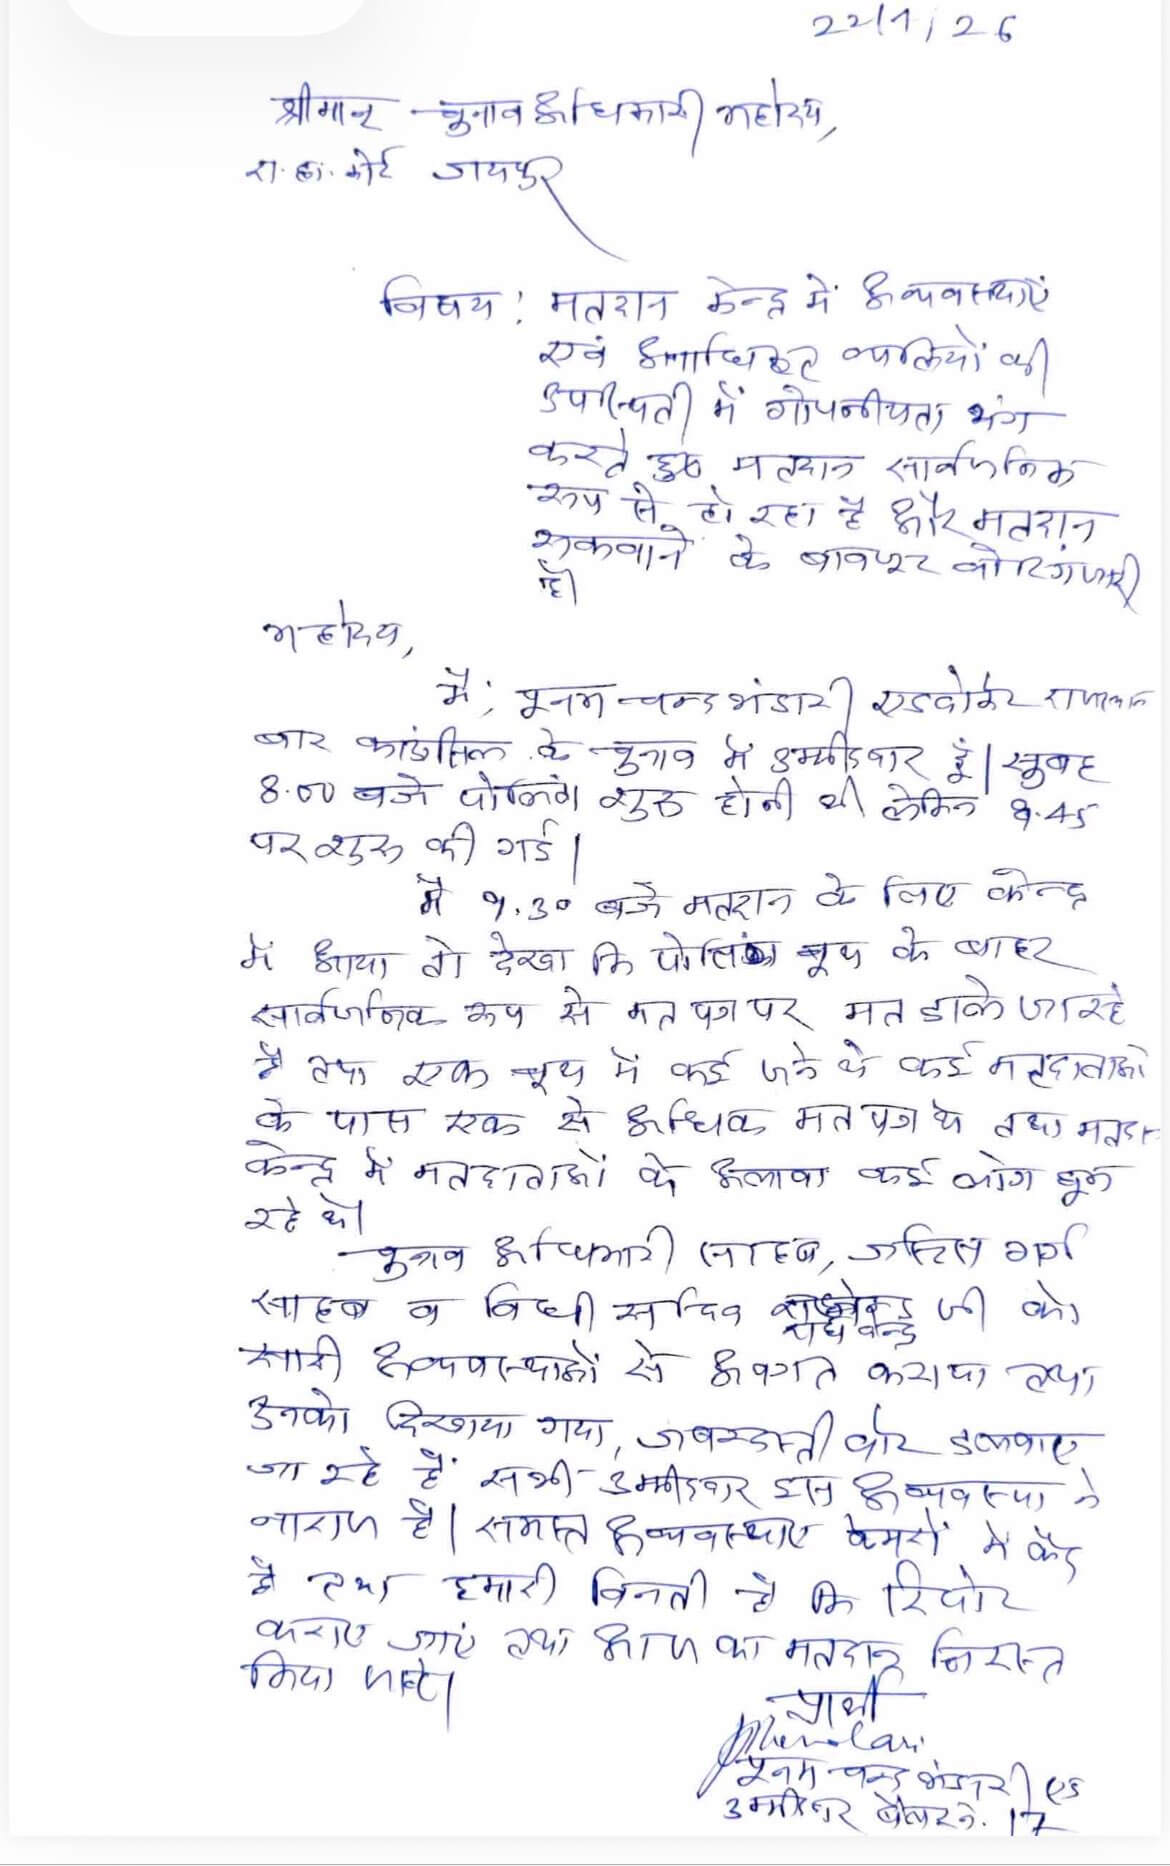 22/1/26
श्रीमान् चुनाव अधिकारी महोदय,
रा. हा. कोर्ट जयपुर
विषय: मतदान केन्द्र में अव्यवस्थाएं
एवं अनाधिकृत व्यक्तियों की
उपस्थिती में गोपनीयता भंग
करते हुए मतदान सार्वजनिक
रूप से हो रहा है और मतदान
रुकवाने के बावजूद वोटिंग जारी
है।
महोदय,
मैं, पूनम चन्द भंडारी एडवोकेट राजस्थान
बार काउंसिल के चुनाव में उम्मीदवार हूं। सुबह
8.00 बजे पोलिंग शुरु होनी थी लेकिन 9.45
पर शुरू की गई।
मैं 9.30 बजे मतदान के लिए केन्द्र
में आया तो देखा कि पोलिंग बूथ के बाहर
सार्वजनिक रूप से मत पत्र पर मत डाले जा रहे
है तथा एक बूथ में कई जने थे कई मतदाताओं
के पास एक से अधिक मत पत्र थे तथा मतदान
केन्द्र में मतदाताओं के अलावा कई लोग घूम
रहे थे।
चुनाव अधिकारी साहब, जस्टिस गर्ग
साहब व विधी सचिव राघवेन्द्र जी को
सारी अव्यवस्थाओं से अवगत कराया तथा
उनको दिखाया गया, जबरदस्ती वोट डलवाए
जा रहे हैं सभी उम्मीदवार इस अव्यवस्था से
नाराज है। समस्त अव्यवस्थाए केमरों में कैद
है तथा हमारी विनती है कि रिपोट
कराए जाएं तथा आज का मतदान निरस्त
किया जावे।
प्रार्थी
Bhandari
पूनम चन्द भंडारी एड
उम्मीदवार बैलट नं. 17